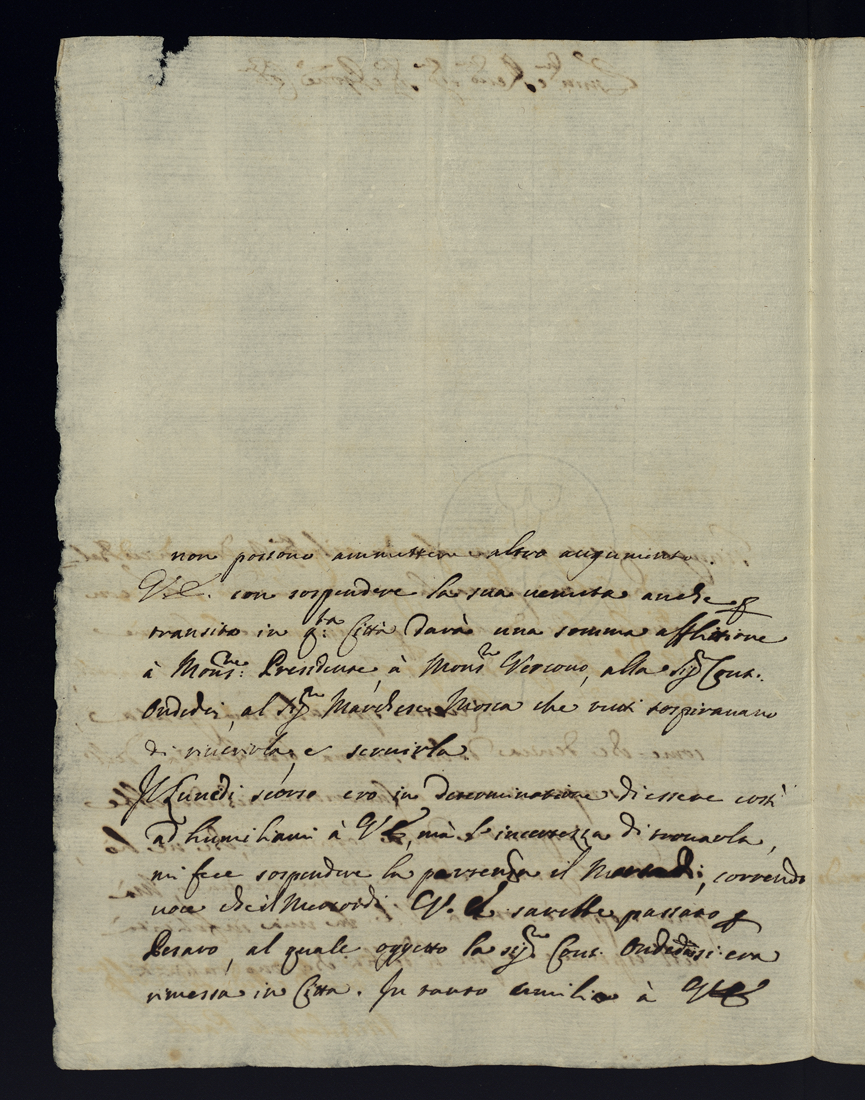 non possono ammettere altro augumento.
V.E. con sospendere la sua venuta anche p
transito in q.ta Città darà una somma afflitione
à Mons.re Presidente, à Mons.re Vescovo, alla Sig.ra Cont.
Ondedei, al Sig.re Marchese Mosca che tutti sospiravano
di riverirla, e servirla.
Il Lunedì scorso ero in determinatione di essere costì
ad humiliarmi à V.E., mà l'incertezza di trovarla,
mi fece sospendere la partenza il Martedì, correndo
voce che il Mercordì V.E. sarebbe passato p
Pesaro, al quale oggetto la Sig.ra Cont. Ondedei era
rimessa in Città. In tanto umilio à V.E.